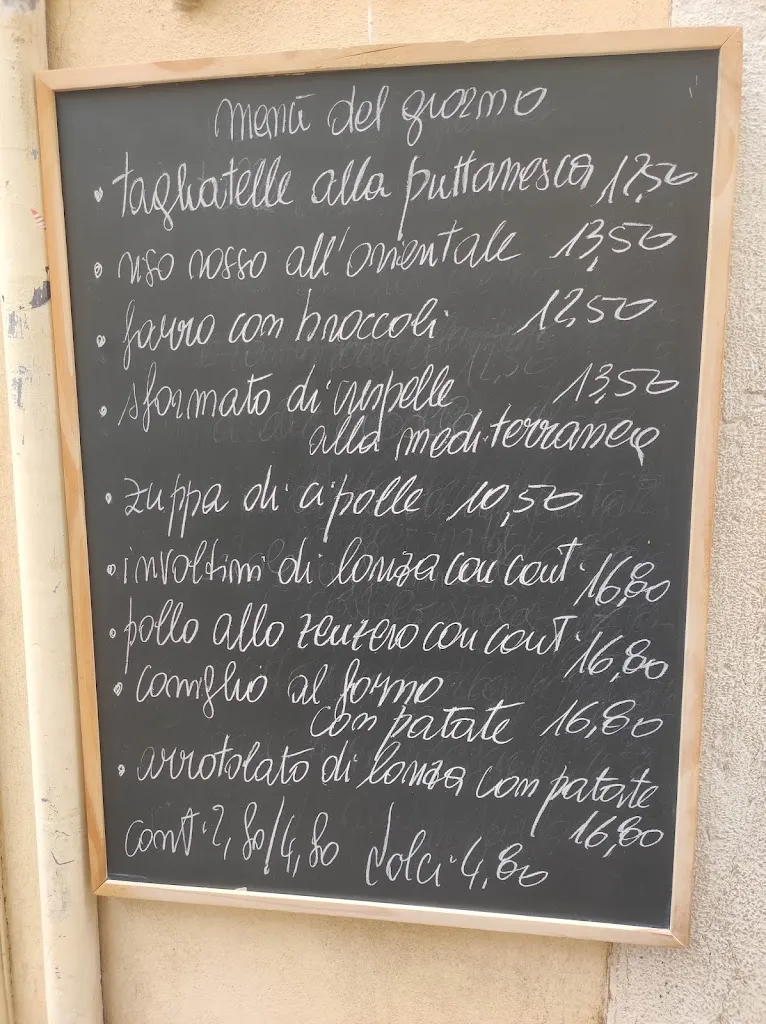 menù del giorno
• tagliatelle alla puttanesca 12,50
• riso rosso all'orientale 13,50
• farro con broccoli 12,50
• sformato di crespelle 13,50
alla mediterranea
• zuppa di cipolle 10,50
• involtini di lonza con cont. 16,80
• pollo allo zenzero con cont. 16,80
• coniglio al forno
con patate 16,80
• arrotolato di lonza con patate
16,80
cont. 2,80/4,80 dolci 4,80